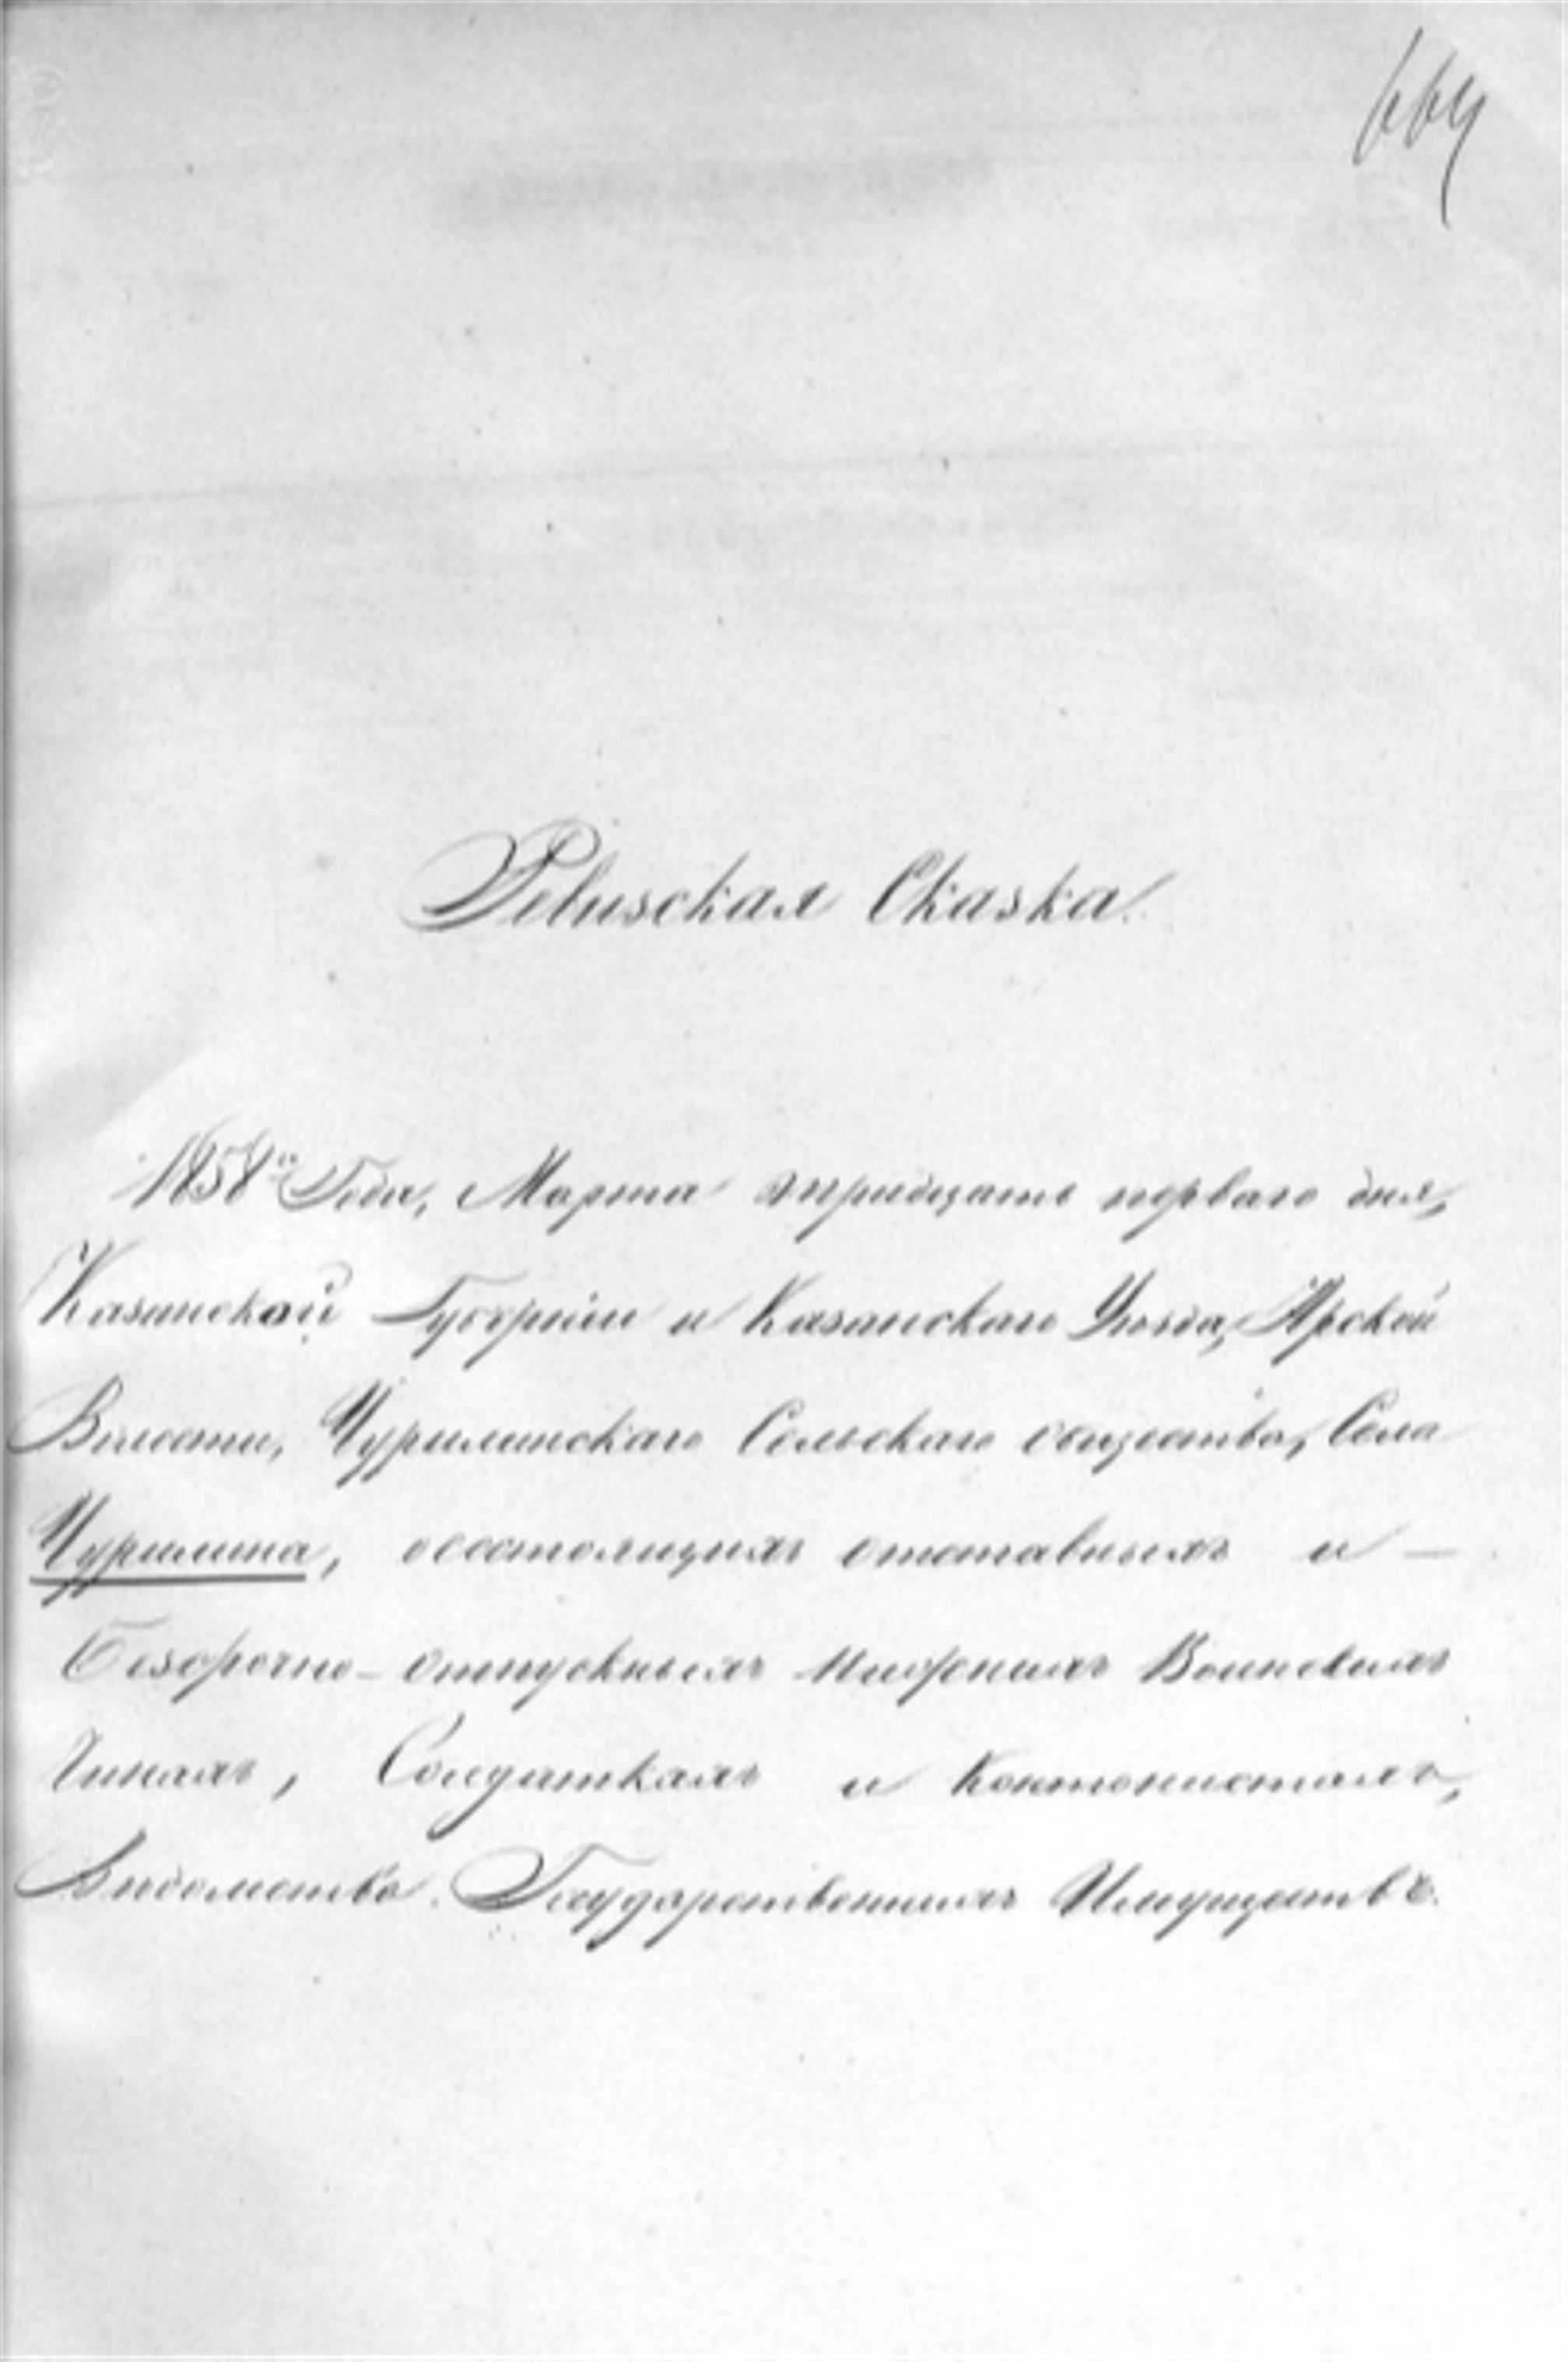 664
Ревизская Сказка.
1858го Года, Марта тридцать перваго дня,
Казанской Губерніи и Казанскаго Уѣзда, Арской
Волости, Чурилинскаго Сельскаго общества, Села
Чурилина, о состоящихъ отставныхъ и —
Безсрочно-отпускныхъ Нижнихъ Воинскихъ
Чинахъ, Солдаткахъ и Кантонистахъ,
Вѣдомства Государственныхъ Имуществъ.